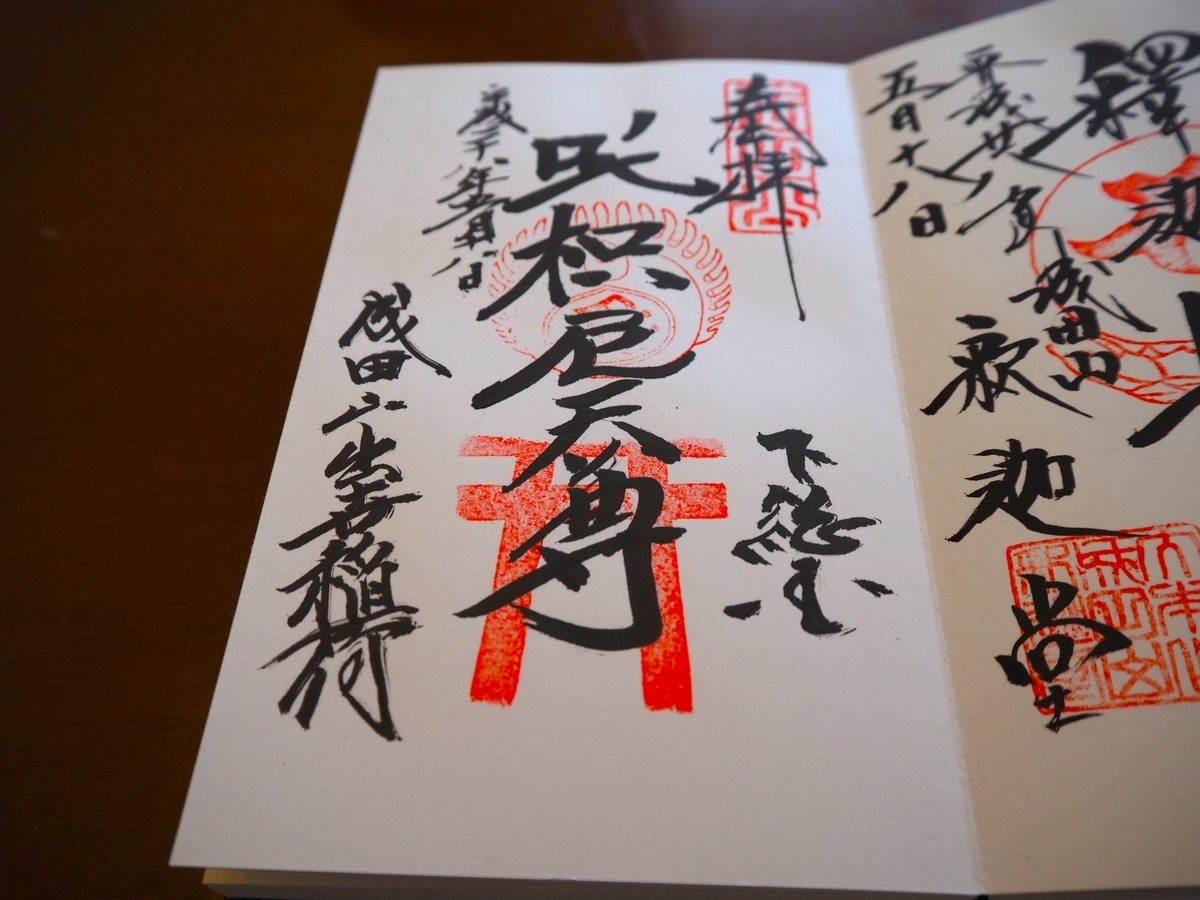 奉拝
下総国
咤枳尼天尊
平成二十八年五月十八日
成田山出世稲荷
釋迦
平成廿八年
五月十八日
成田山
釈迦堂